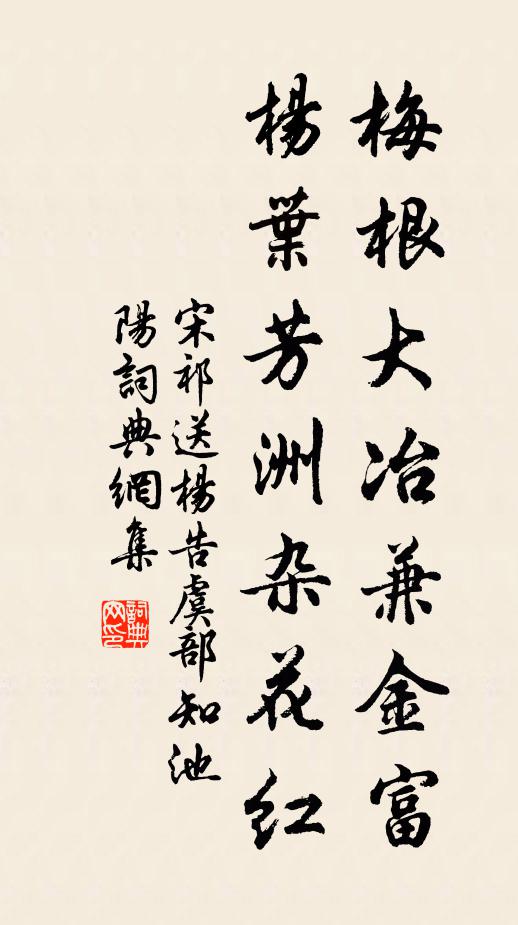 梅根大冶兼金富
楊葉芳洲杂花红
宋祁送楊告虞部知池
陽詞典網集
詞典网印